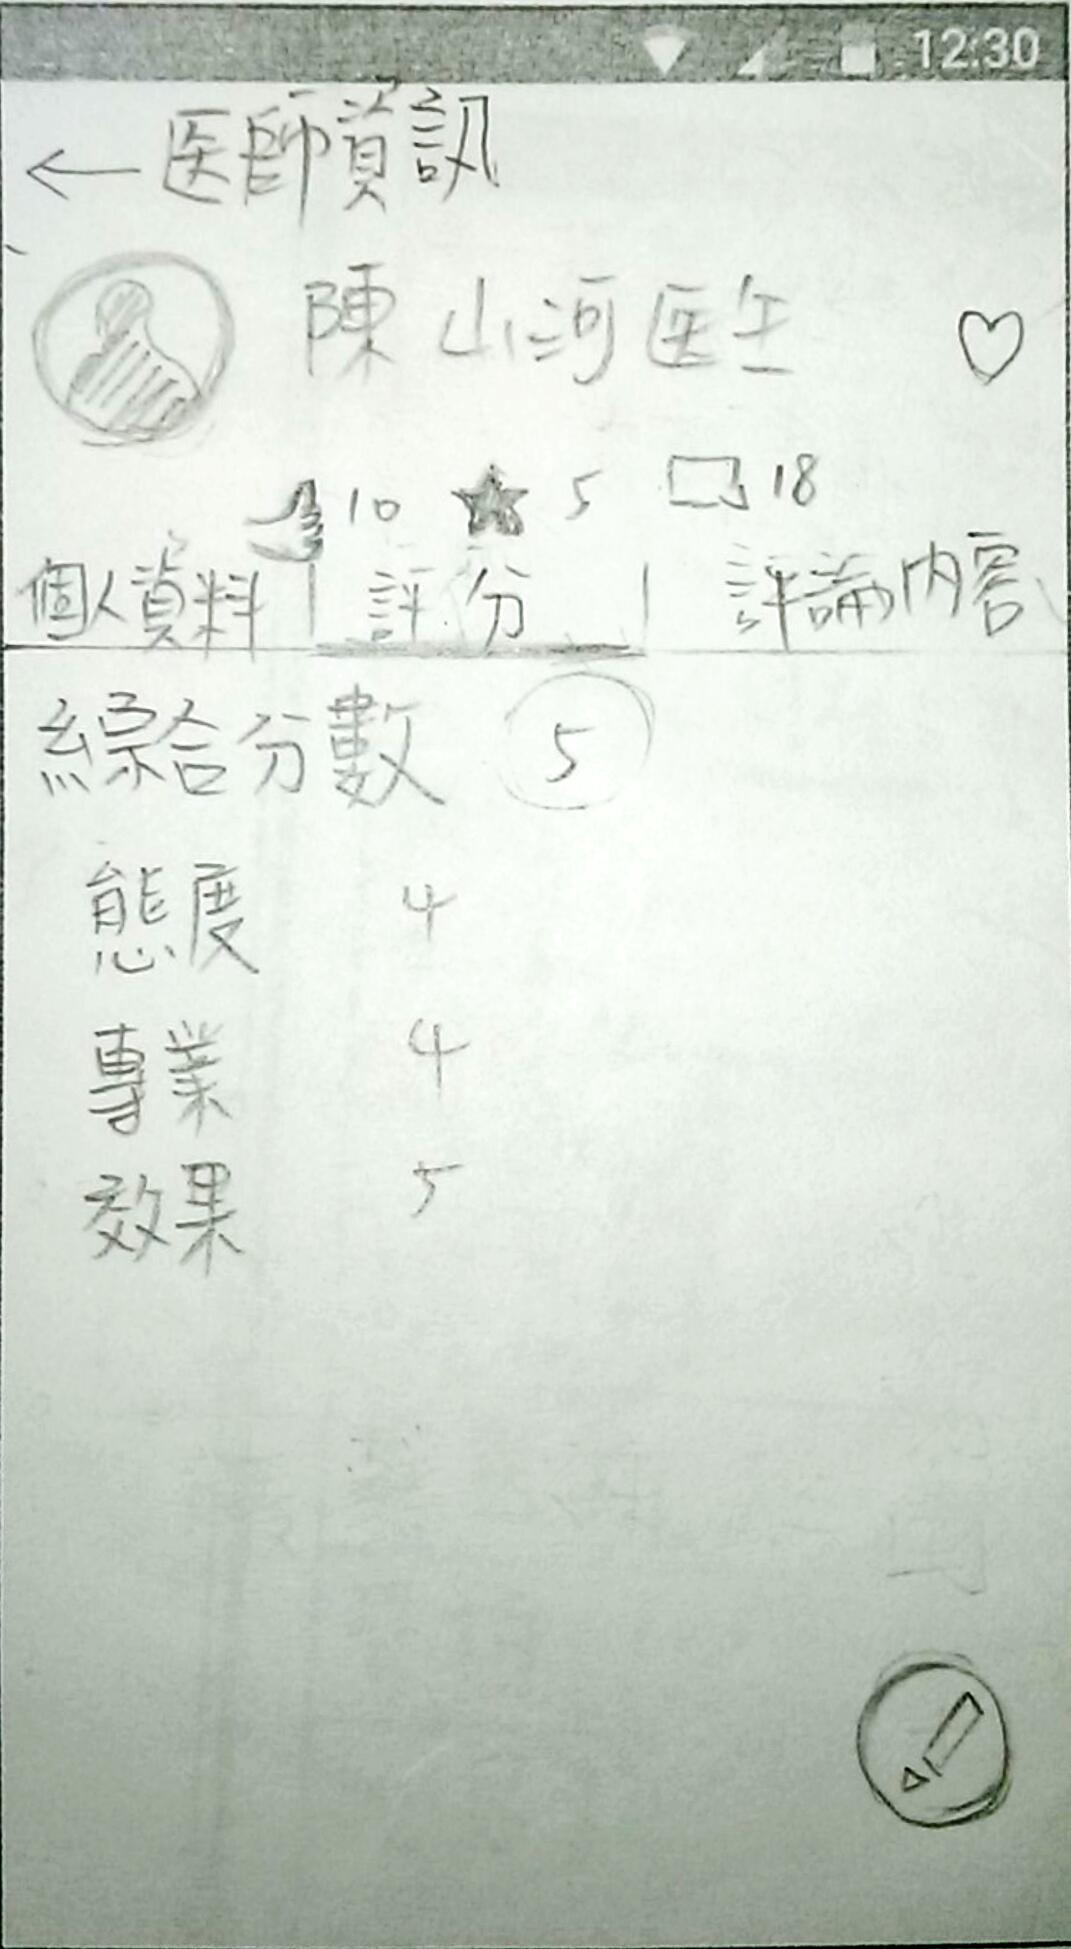 12:30
← 医師資訊
陳山河医生
10 5 18
個人資料 | 評分 | 評論内容
綜合分數 5
態度 4
專業 4
效果 5